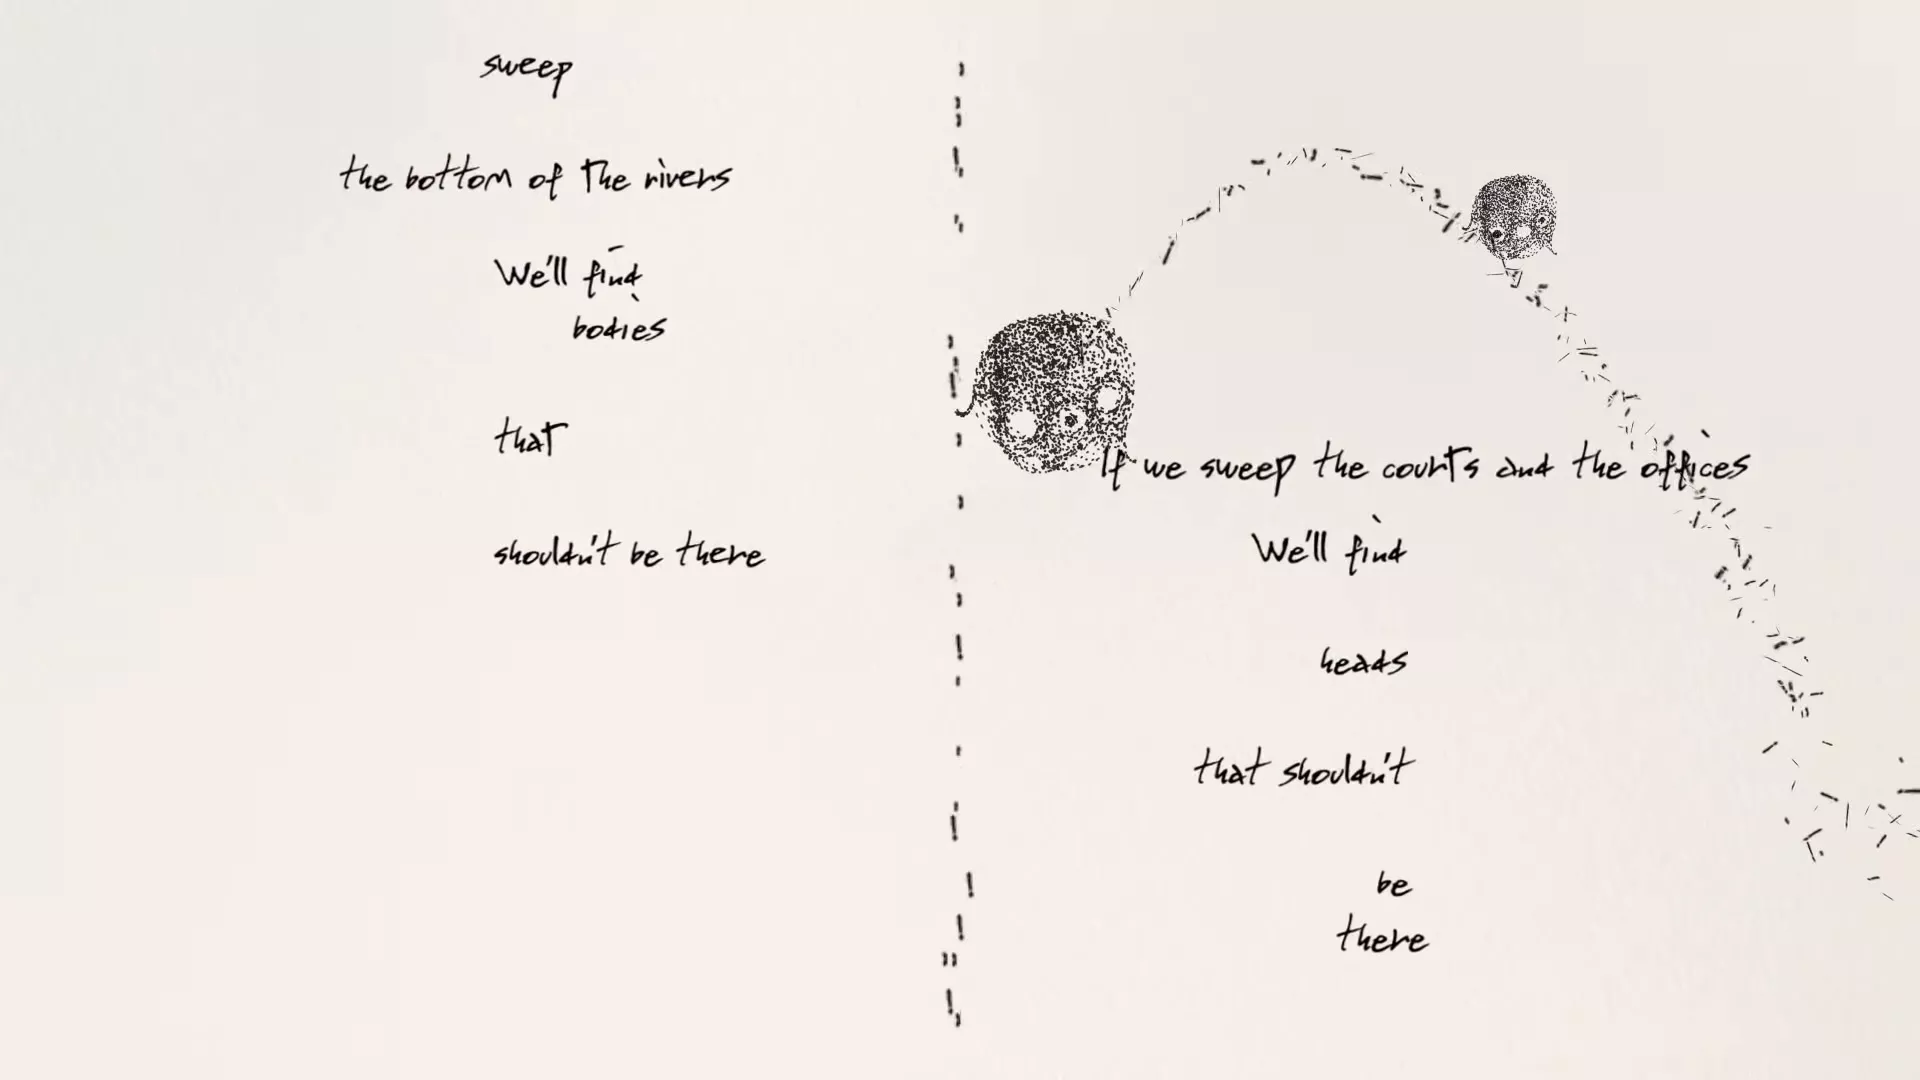 sweep
the bottom of The rivers
We'll find
bodies
that
shouldn't be there
If we sweep the courts and the offices
We'll find
heads
that shouldn't
be
there